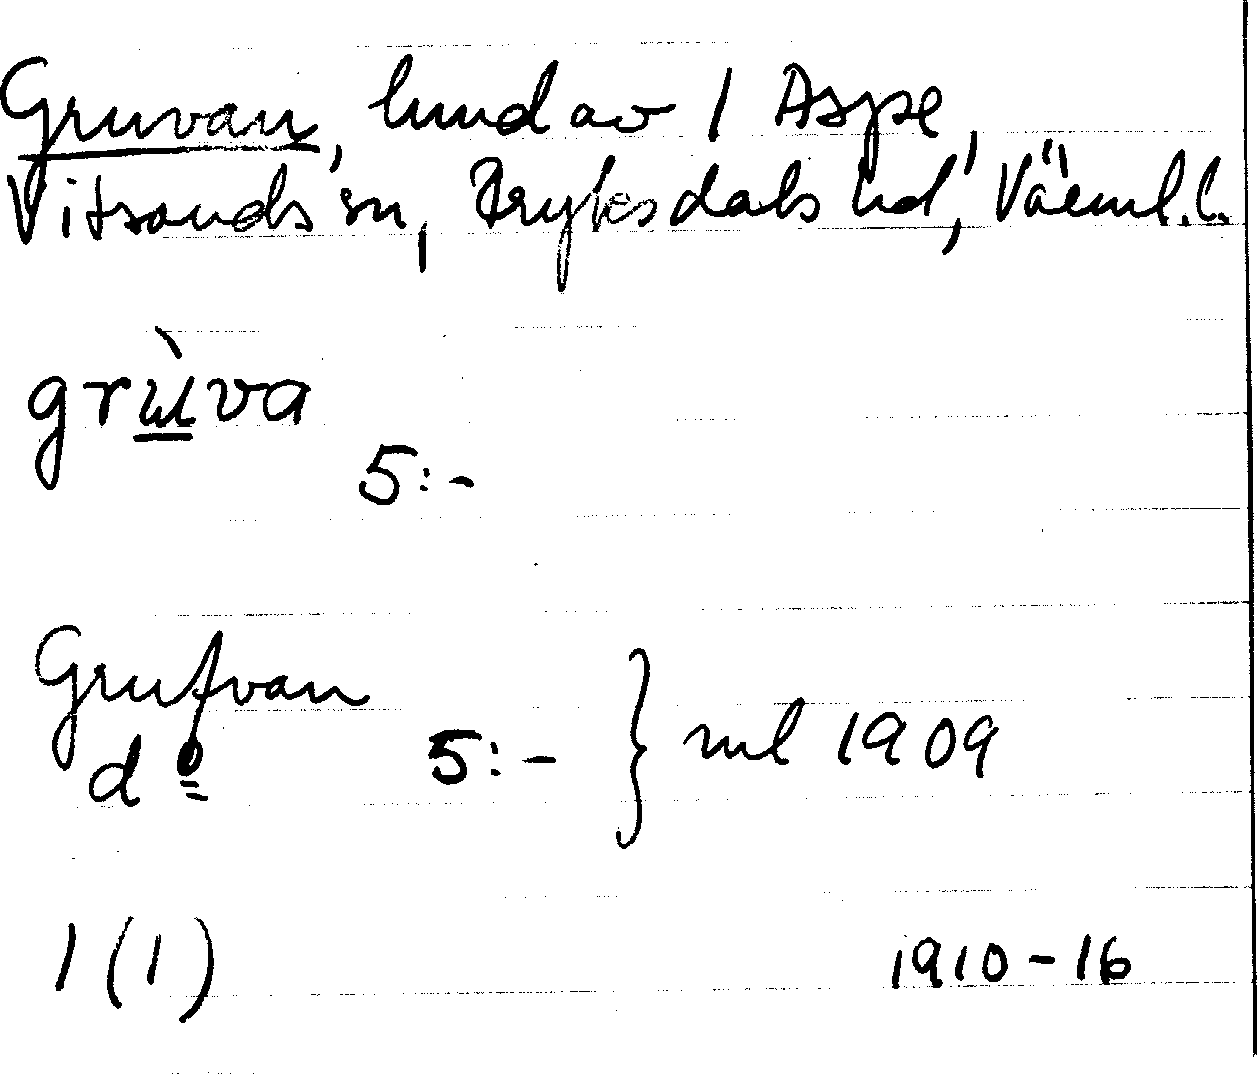 Gruvan, hmd av 1 Aspe,
Vitsands sn, Fryksdals hd, Värml. l.
grùva
5:-
Grufvan
dº 5:- } ml 1909
1 (1) 1910-16